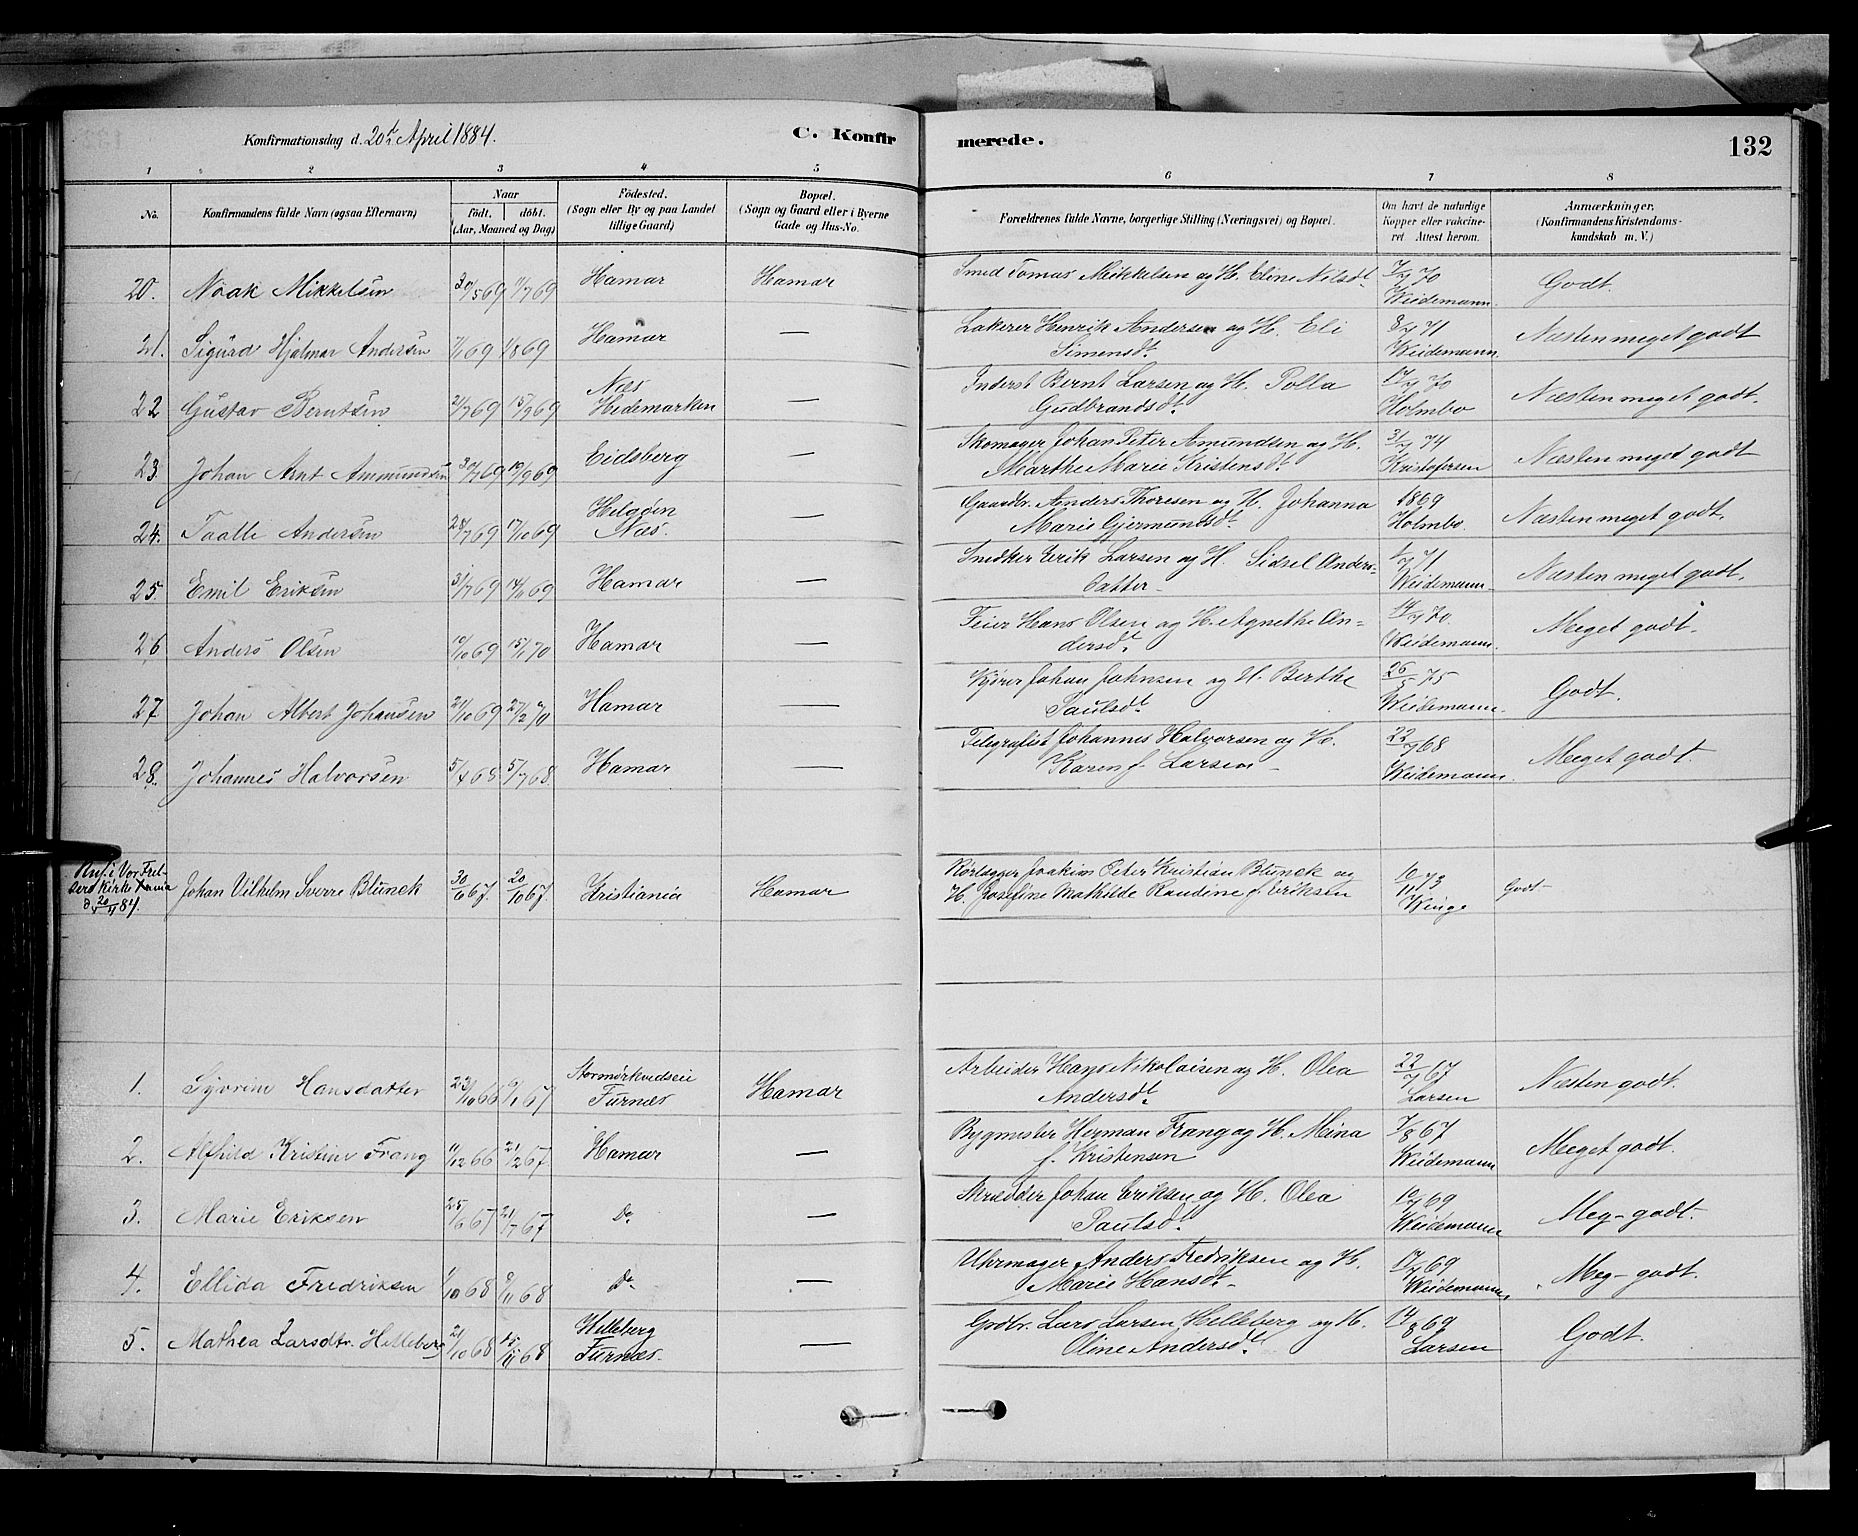 Konfirmationsdag d. 20de April 1884.
C. Konfirmerede.
132
1 2 3 4 5 6 7 8
No. | Konfirmandens fulde Navn (ogsaa Efternavn) | Naar født. døbt. (Aar, Maaned og Dag) | Fødested. (Sogn eller By og paa Landet tillige Gaard) | Bopæl. (Sogn og Gaard eller i Byerne Gade og Hus-No. | Forældrenes fulde Navne, borgerlige Stilling (Næringsvei) og Bopæl. | Om havt de naturlige Kopper eller vakcineret Attest herom. | Anmærkninger. (Konfirmandens Kristendomskundskab m. V.)
20. Noak Mikkelsen | 30/5 69 | 11/7 69 | Hamar | Hamar | Smed Tomas Mikkelsen og H. Eline Nilsdt. | 7/7 70 Weidemann. | Godt.
21. Sigurd Hjalmar Andersen | 7/1 69 | 1/8 69 | Hamar | — | Lakerer Henrik Andersen og H. Eli Simensdt. | 71 Weidemann. | Næsten meget godt
22 Gustav Berntsen | 2/7 69 | 15/9 69 | Næs Hedemarken | — | Inderst Bernt Larsen og H. Polla Gudbrandsdt. | 17/7 70 Holmbo | Næsten meget godt.
23. Johan Arnt Ammundsen | 30/7 69 | 19/9 69 | Eidsberg | — | Skomager Johan Peter Amundsen og H. Marthe Marie Kristensdt. | 31/7 74 Kristofersen | Næsten meget godt
24. Taalli Andersen | 28/7 69 | 17/10 69 | Helgøen Næs. | — | Gaardbr. Anders Thoresen og H. Johanna Marie Gjermundsdt. | 1869 Holmbo. | Næsten meget godt.
25. Emil Eriksen | 3/7 69 | 14/11 69 | Hamar | — | Snedker Erik Larsen og H. Sidsel Andersdatter | 71 Weidemann. | Næsten meget godt.
26 Anders Olsen | 10/10 69 | 15/1 70 | Hamar | — | Feier Hans Olsen og H. Agnethe Andersdt. | 14/7 70. Weidemann. | Meget godt.
27 Johan Albert Johansen | 21/10 69 | 27/2 70 | Hamar | — | Kjører Johan Johnsen og H. Berthe Paulsdt. | 26/5 75 Weidemann. | Godt.
28. Johannes Halvorsen | 5/4 68 | 5/7 68. | Hamar | — | Telegrafist Johannes Halvorsen og H. Karen f. Larsen | 22/9 68 Weidemann. | Meget godt.
i Vor Frelsers Kirke d. 20/4 84. Johan Vilhelm Sverre Blunck | 30/6 67. | 20/10 67. | Kristiania | Hamar | Rørlægger Joakim Peter Kristian Blunck og H. Josefine Mathilde Randine f. Eriksen | 6/11 73 Winge | Godt
1. Syvrine Hansdatter | 23/10 66 | 6/1 67 | Furnæs | Hamar | Arbeider Hans Nikolaisen og H. Olea Andersdt. | 22/7 67 Larsen | Næsten godt.
2. Alfhild Kristine Frang | 11/12 66 | 21/2 67. | Hamar | — | Bygmester Herman Frang og H. Mina f. Kristensen | 7/8 67 Weidemann | Meget godt.
3. Marie Eriksen | 25/6 67 | 21/7 67 | Do. | — | Skrædder Johan Eriksen og H. Olea Paulsdt. | 10/7 69 Weidemann | Meg-godt.
4. Ellida Fredriksen | 1/10 68 | 9/11 68 | Do. | — | Uhrmager Anders Fredriksen og H. Marie Hansdt. | 17/7 69 Weidemann. | Meg-godt.
5. Mathea Larsdtr. Helleberg | 21/10 68 | 15/11 68 | Helleberg Furnæs. | — | Gdbr. Lars Larsen Helleberg og H. Oline Andersdt. | 14/8 69 Larsen | Godt.